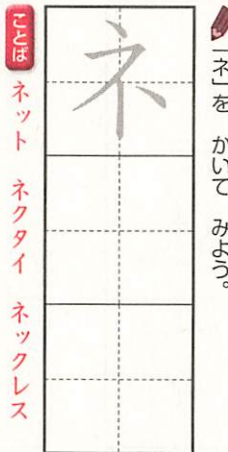 「ネ」を かいて みよう。
ネ
ことば ネット ネクタイ ネックレス